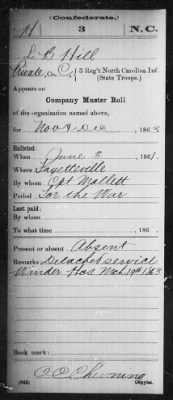 (Confederate.)
H 3 N.C.
L. B. Hill
Private, Co. C, 3 Reg't North Carolina Inf.
(State Troops.)
Appears on
Company Muster Roll
of the organization named above,
for Nov & Dec, 1863
Enlisted:
When June 3, 1861.
Where Fayetteville
By whom Cpt Mallett
Period For the War
Last paid:
By whom
To what time , 186 .
Present or absent Absent
Remarks: Detached service
Winder Hos Nov 19th 1863
Book mark:
(642) Copyist.